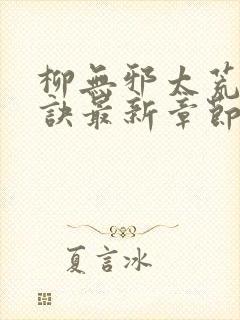 柳無邪太荒
訣最新章節
夏言冰